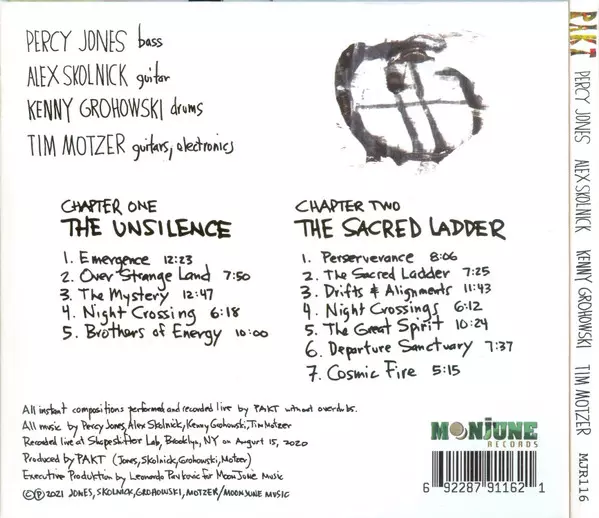 PERCY JONES bass
ALEX SKOLNICK guitar
KENNY GROHOWSKI drums
TIM MOTZER guitars, electronics
CHAPTER ONE
THE UNSILENCE
1. Emergence 12:23
2. Over Strange Land 7:50
3. The Mystery 12:47
4. Night Crossing 6:18
5. Brothers of Energy 10:00
CHAPTER TWO
THE SACRED LADDER
1. Perserverance 8:06
2. The Sacred Ladder 7:25
3. Drifts & Alignments 11:43
4. Night Crossings 6:12
5. The Great Spirit 10:24
6. Departure Sanctuary 7:37
7. Cosmic Fire 5:15
All instant compositions performed and recorded live by PAKT without overdubs.
All music by Percy Jones, Alex Skolnick, Kenny Grohowski, Tim Motzer
Recorded live at ShapeShifter Lab, Brooklyn, NY on August 15, 2020
Produced by PAKT (Jones, Skolnick, Grohowski, Motzer)
Executive Production by Leonardo Pavkovic for MoonJune Music
©℗ 2021 JONES, SKOLNICK, GROHOWSKI, MOTZER/MOONJUNE MUSIC
MOONJUNE
RECORDS
6 92287 91162 1
PAKT PERCY JONES ALEX SKOLNICK KENNY GROHOWSKI TIM MOTZER MJR116